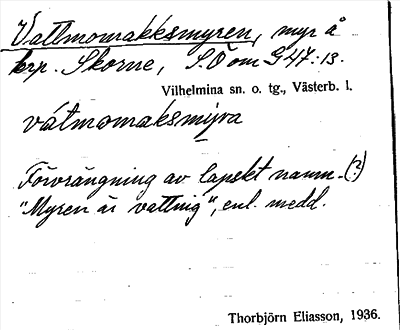 Vattmomakksmyren, myr å
krp. Skorne, S.Ö om G 47:13.
Vilhelmina sn. o. tg., Västerb. l.
våtmomaksmýra
Förvrängning av lapskt namn. (?)
"Myren är vattnig", enl. medd.
Thorbjörn Eliasson, 1936.